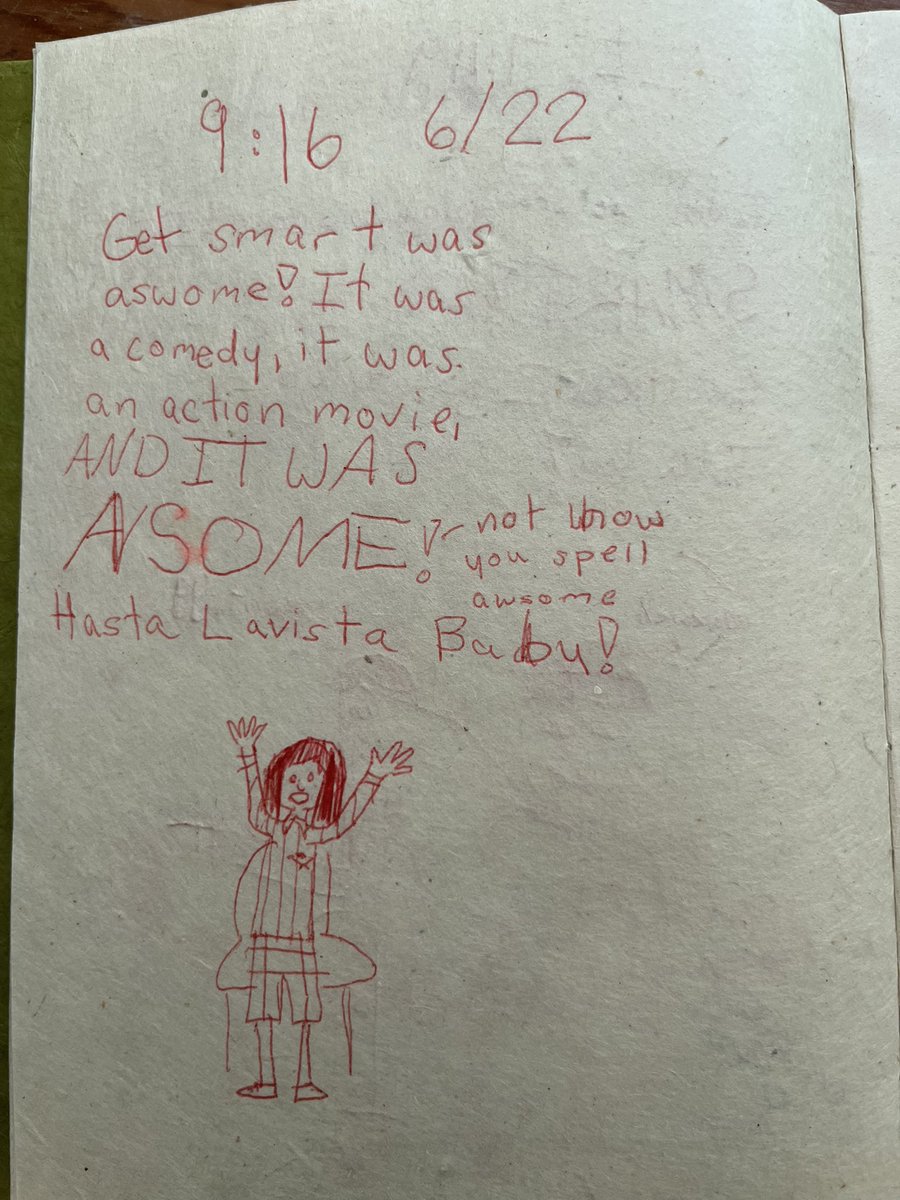 9:16 6/22
Get smart was
aswome! It was
a comedy, it was
an action movie,
AND IT WAS
AWSOME!
not how
you spell
awsome
Hasta Lavista Baby!